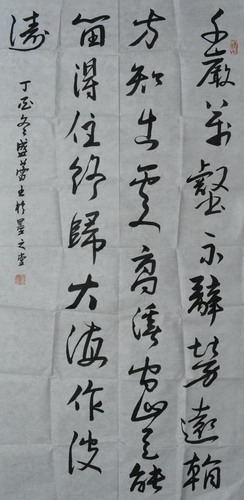 千巖萬壑不辭勞遠看
方知出處高溪澗豈能
留得住終歸大海作波
濤
丁酉冬盛書於墨之堂